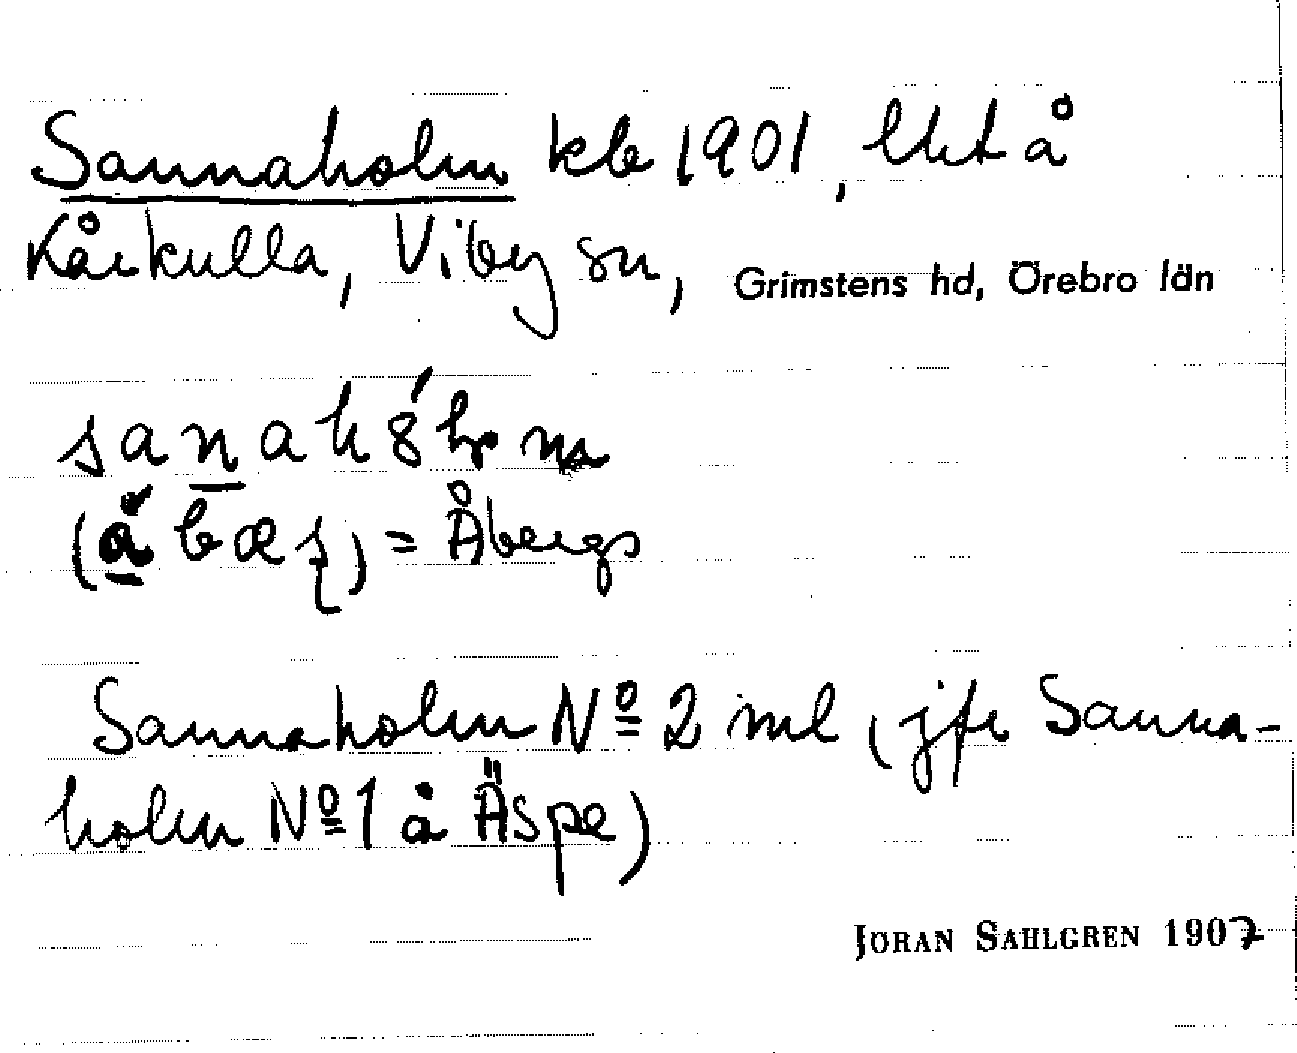 Sannaholm kb 1901, lht å
Kårkulla, Viby sn, Grimstens hd, Örebro län
sanah8́lm
(ǻbæʂ) = Åbergs
Sannaholm Nº 2 ml (jfr Sanna-
holm Nº 1 å Äspe)
JÖRAN SAHLGREN 1907